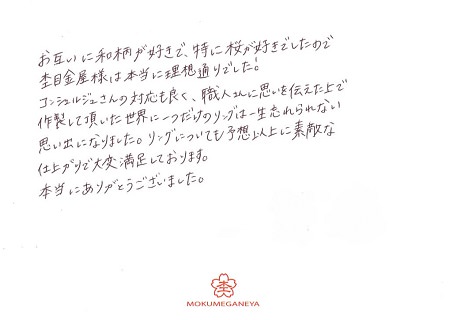 お互いに和柄が好きで、特に桜が好きでしたので
杢目金屋様は本当に理想通りでした!
コンシェルジュさんの対応も良く、職人さんに思いを伝えた上で
作製して頂いた世界に一つだけのリングは一生忘れられない
思い出になりました。リングについても予想以上に素敵な
仕上がりで大変満足しております。
本当にありがとうございました。
杢
MOKUMEGANEYA